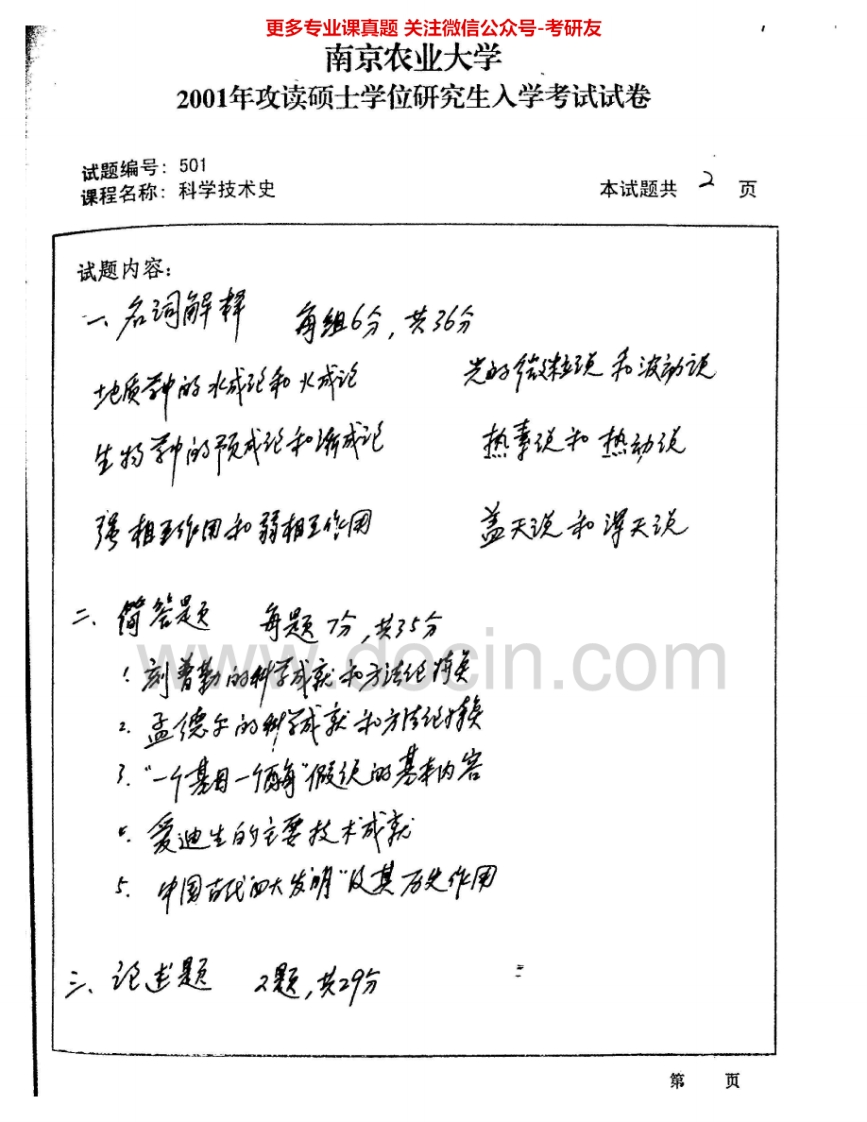 更多专业课真题 关注微信公众号-考研友
南京农业大学
2001年攻读硕士学位研究生入学考试试卷
试题编号：501
课程名称：科学技术史 本试题共 2 页
试题内容：
一、名词解释 每组6分，共36分
地质学中的水成论和火成论 光的微粒说和波动说
生物学中的预成论和渐成论 热素说和热动说
强相互作用和弱相互作用 盖天说和浑天说
二、简答题 每题7分，共35分
www.docin.com
1. 刻普勒的科学成就和方法论特点
2. 孟德尔的科学成就和方法论特点
3. “一个基因一个酶”假说的基本内容
4. 爱迪生的主要技术成就
5. 中国古代“四大发明”及其历史作用
三、论述题 2题，共29分
第 页